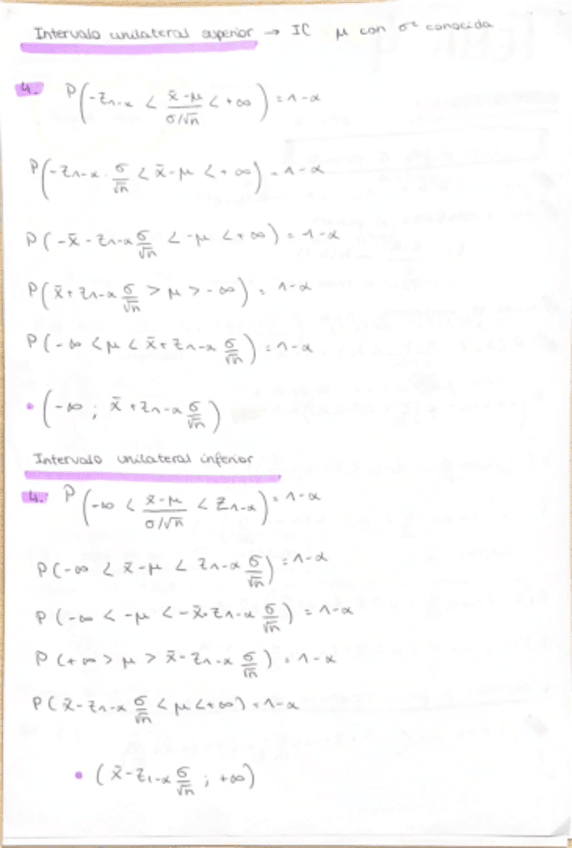 Intervalo unilateral superior → IC μ con σ² conocida
4. P(-z₁₋α < (x̄-μ)/(σ/√n) < +∞) = 1-α
P(-z₁₋α · σ/√n < x̄-μ < +∞) = 1-α
P(-x̄ - z₁₋α σ/√n < -μ < +∞) = 1-α
P(x̄ + z₁₋α σ/√n > μ > -∞) = 1-α
P(-∞ < μ < x̄ + z₁₋α σ/√n) = 1-α
• (-∞ ; x̄ + z₁₋α σ/√n)
Intervalo unilateral inferior
4. P(-∞ < (x̄-μ)/(σ/√n) < z₁₋α) = 1-α
P(-∞ < x̄-μ < z₁₋α σ/√n) = 1-α
P(-∞ < -μ < -x̄+z₁₋α σ/√n) = 1-α
P(+∞ > μ > x̄ - z₁₋α σ/√n) = 1-α
P(x̄ - z₁₋α σ/√n < μ < +∞) = 1-α
• (x̄ - z₁₋α σ/√n ; +∞)